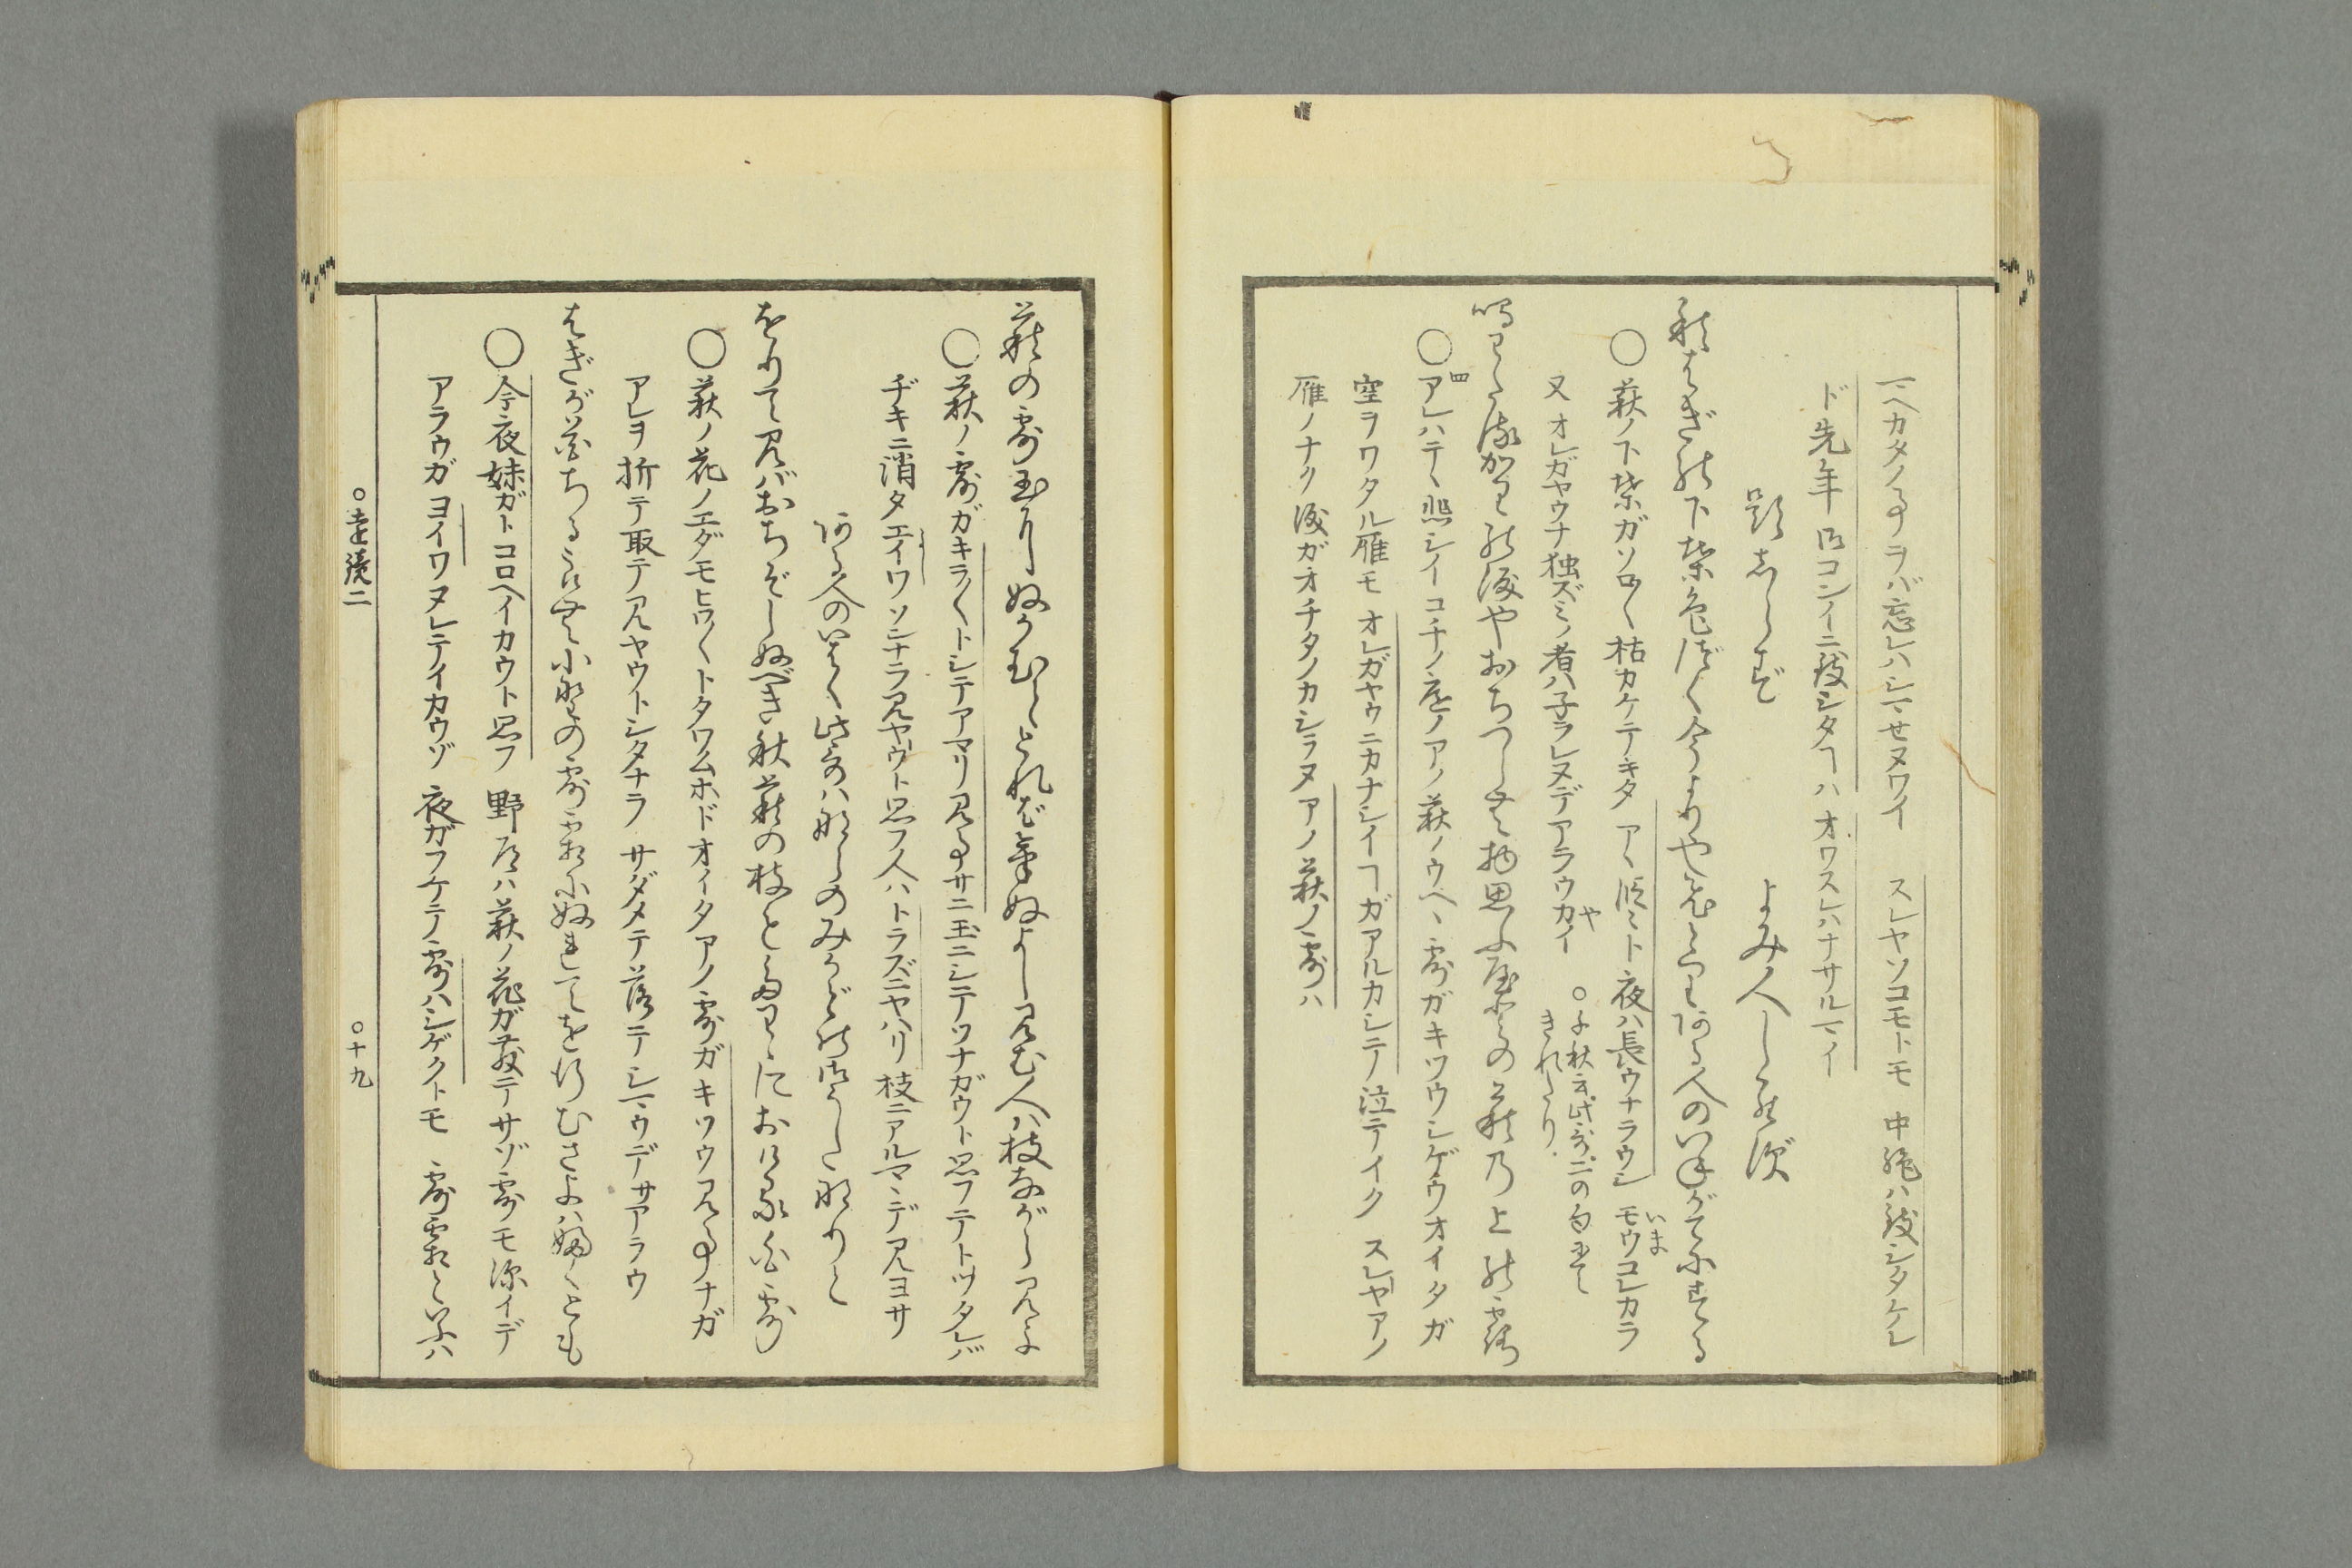 マヘカタノ事ヲバ忘レハシマセヌワイ　スレヤソコモトモ　中絶ハ致シタケレ
ド先年御コンイニ致シタヿハ　オワスレハナサルマイ
題しらず　よみ人しらず
秋はぎの下葉色づく今よりやひとりある人のいねがてにする
○萩ノ下葉ガソロ〳〵枯カケテキタ　アヽ段々ト夜ハ長ウナラウシ　モウコレカラ
いま
又オレガヤウナ独ズミノ者ハ子ラレヌデアラウカイ
や
○千秋云此歌二の句にて
きれたり
鳴わたる雁の涙やおちつらむ物思ふ屋どの萩の上の露
○アレハテヽ悲シイコチノ庭ノアノ萩ノウヘヽ露ガキツウシゲウオイタガ
四
空ヲワタル雁モ　オレガヤウニカナシイヿガアルカシテ泣テイク　スレヤアノ
雁ノナク涙ガオチタノカシラヌ　アノ萩ノ露ハ
萩の露玉にぬかむととればけぬよし見む人は枝ながら見よ
○萩ノ露ガキラ〳〵トシテアマリ見事サニ玉ニシテツナガウト思フテトツタレバ
ヂキニ消タ　エイワソンナラ見ヤウト思フ人ハ　トラズニヤハリ枝ニアルマヽデ見ヨサ
よし
ある人のいはく此歌はならのみかどの御うたなりと
をりて見ばおちぞしぬべき秋萩の枝もたわゝにおける白露
○萩ノ花ノエダモヒワ〳〵トタワムホドオイタアノ露ガキツウ見事ナガ
アレヲ折テ取テ見ヤウトシタナラ　サダメテ落テシマウデサアラウ
はぎが花ちるらむ小野の露霜にぬれてをゆかむさよはふくとも
○今夜妹ガトコロヘイカウト思フ　野道ハ萩ノ花ガ散テサゾ露モ深イデ
アラウガ　ヨイワヌレテイカウゾ　夜ガフケテ露ハシゲクトモ　露霜といふは
○遠鏡二　○十九